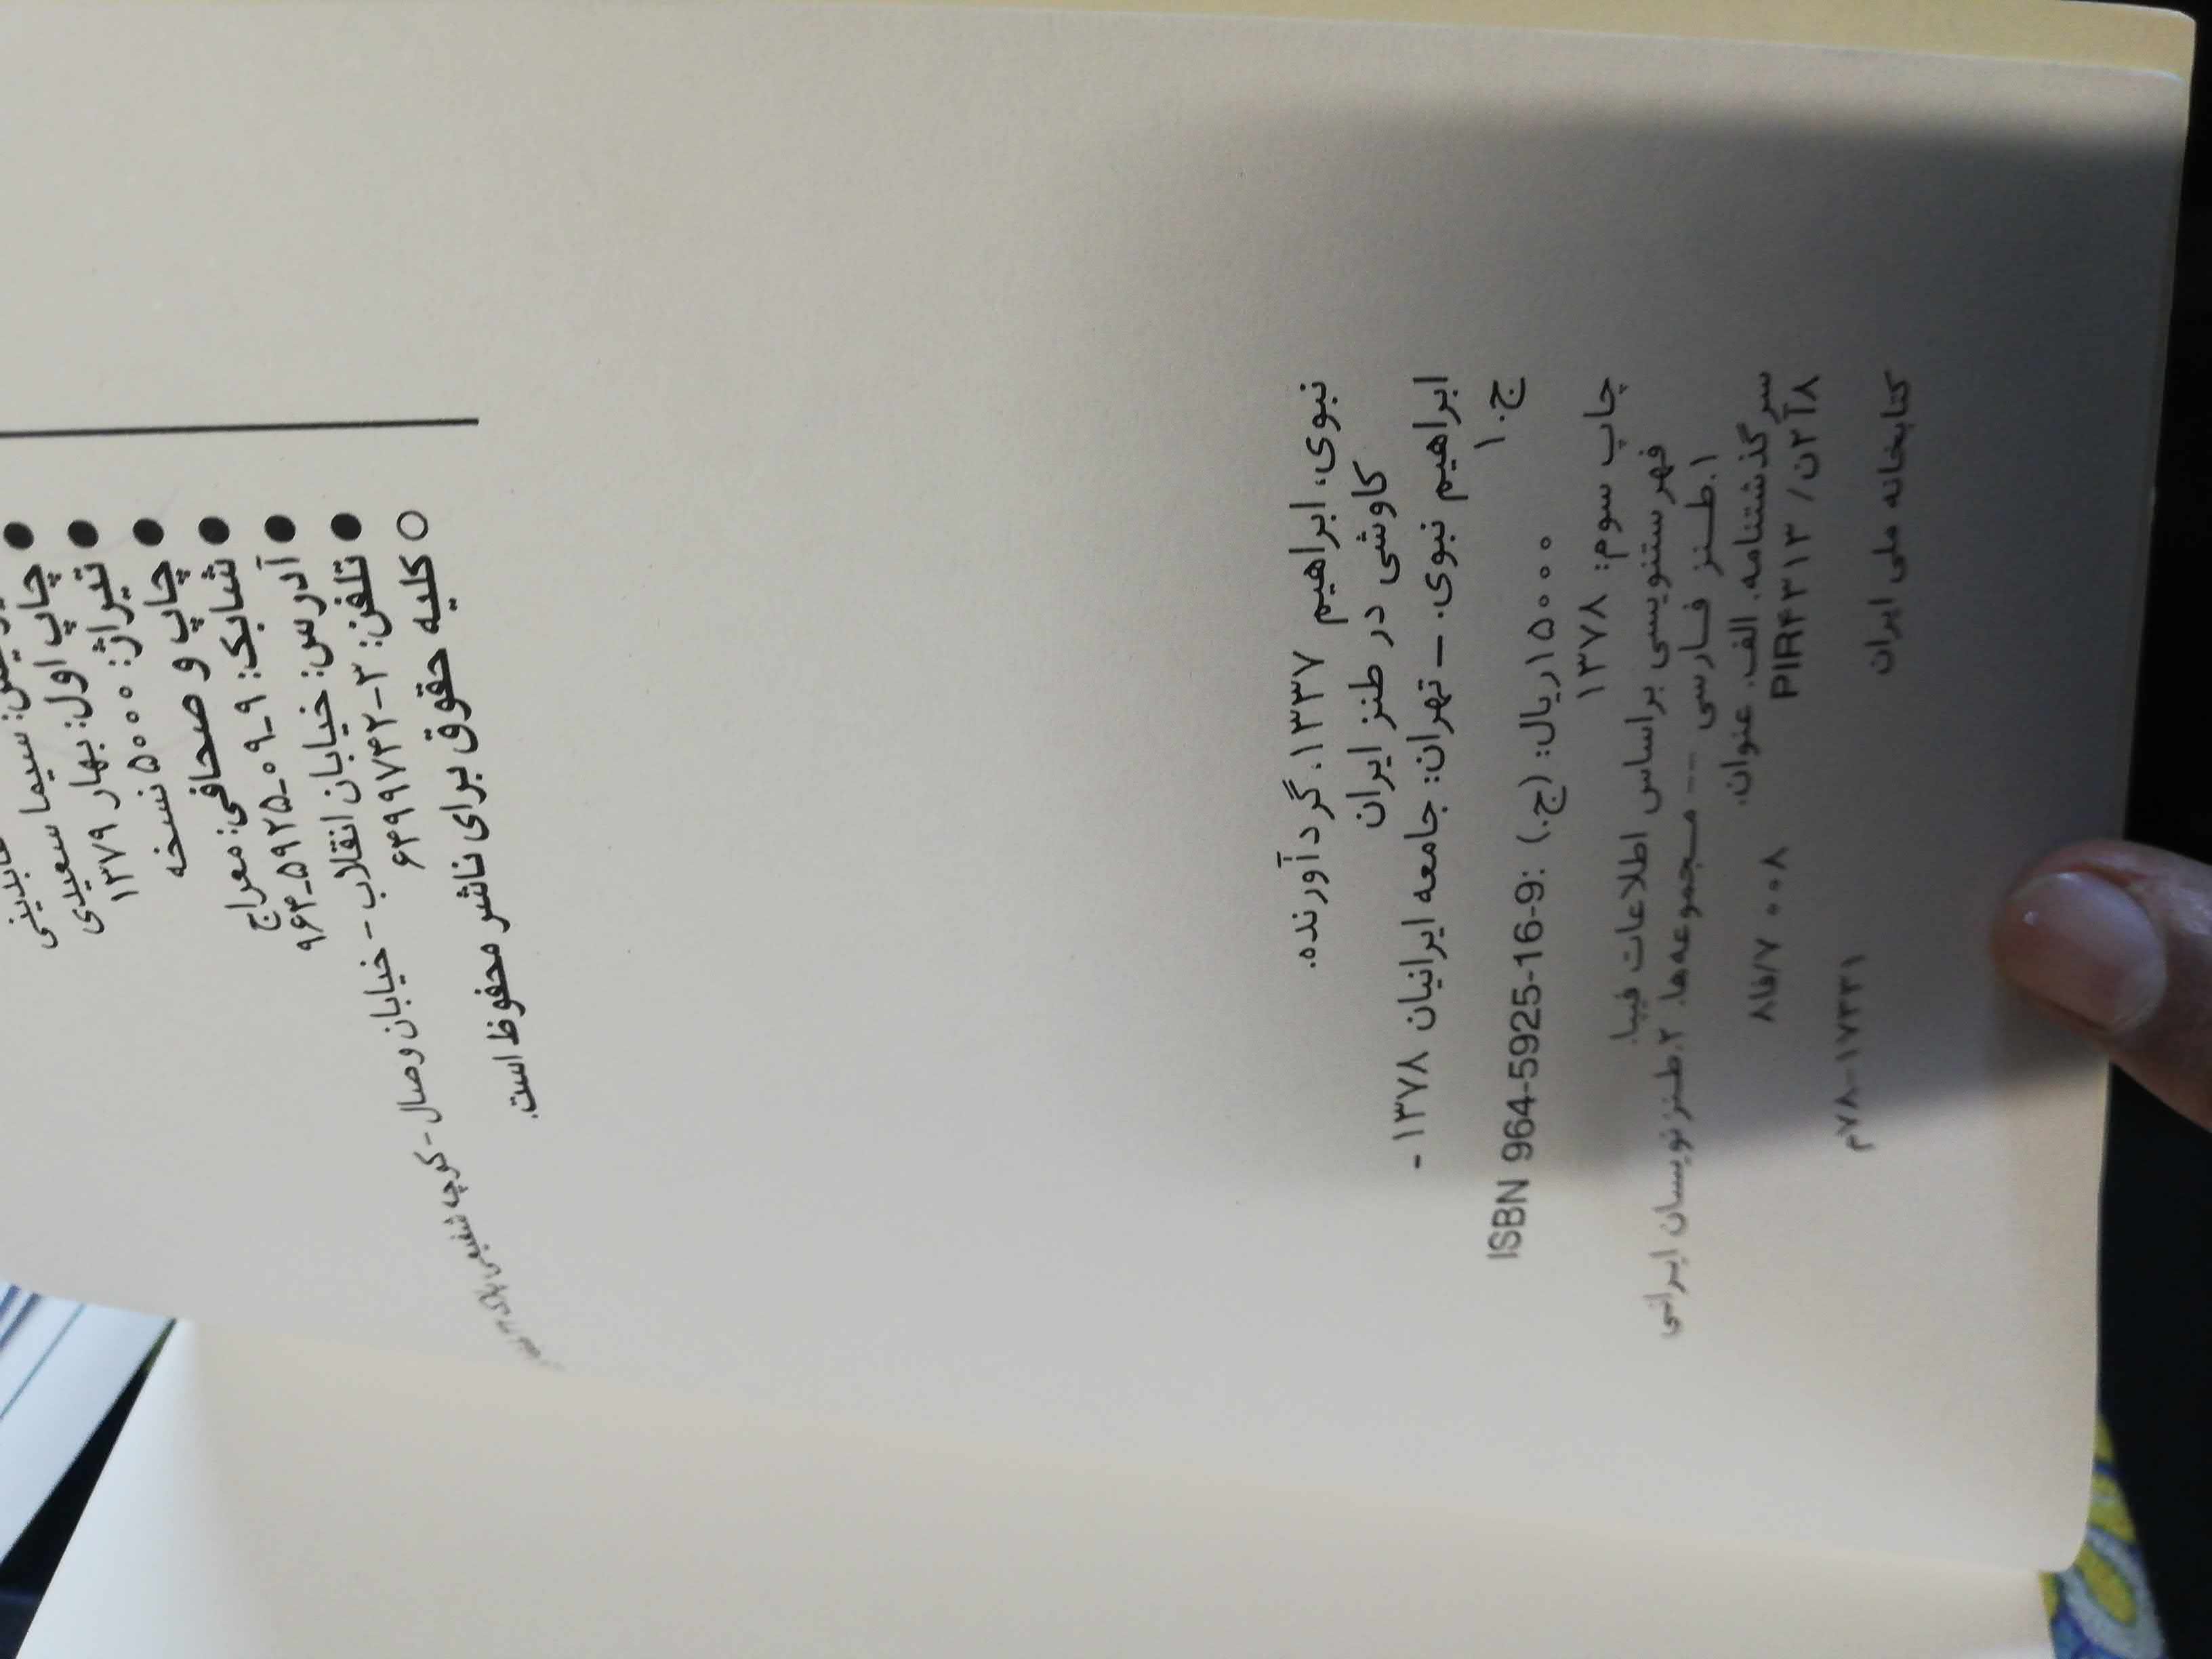 سیما سعیدی
● چاپ اول: بهار ۱۳۷۹
● تیراژ: ۵۰۰۰ نسخه
● چاپ و صحافی: معراج
● شابک: ۹-۰۹-۵۹۲۵-۹۶۴
● آدرس: خیابان انقلاب - خیابان وصال - کوچه شفیعی
● تلفن: ۳-۶۴۹۹۷۴۲
○ کلیه حقوق برای ناشر محفوظ است.
نبوی، ابراهیم ۱۳۳۷. گردآورنده.
کاوشی در طنز ایران
ابراهیم نبوی. – تهران: جامعه ایرانیان ۱۳۷۸ -
ج. ۱
ISBN 964-5925-16-9: (ج.) ۱۵۰۰۰ریال:
چاپ سوم: ۱۳۷۸
فهرستنویسی براساس اطلاعات فیپا.
۱.طنز فارسی -- مجموعه‌ها. ۲.طنزنویسان ایرانی
سرگذشتنامه. الف. عنوان.
۸آ۲ن/ PIR۴۳۱۳ ۸فا۷/۰۰۸
کتابخانه ملی ایران ۱۷۳۳۱-۷۸م